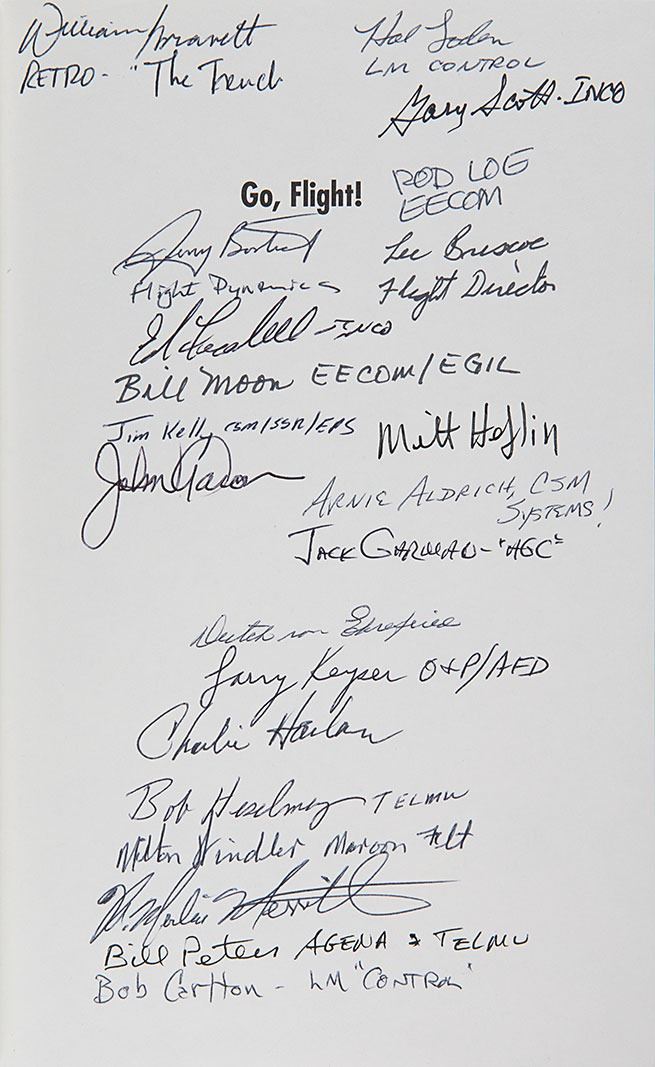 William
RETRO - "The Trench
Hal Loden
LM CONTROL
Gary Scott - INCO
Go, Flight!
ROD LOE
EECOM
Jerry Bostick
Flight Dynamics
Lee Briscoe
Flight Director
Ed - INCO
Bill Moon EECOM/EGIL
Jim Kelly CSM/SSR/EPS
Milt Heflin
John Aaron
ARNIE ALDRICH, CSM
SYSTEMS!
JACK GARMAN - "AGC"
Dutch von Ehrenfried
Larry Keyser O&P/AFD
Charlie Harlan
Bob Heselmeyer TELMU
Milton Windler Maroon Flt
M. Merlin Merritt
Bill Peters AGENA & TELMU
Bob Carlton - LM "CONTROL"